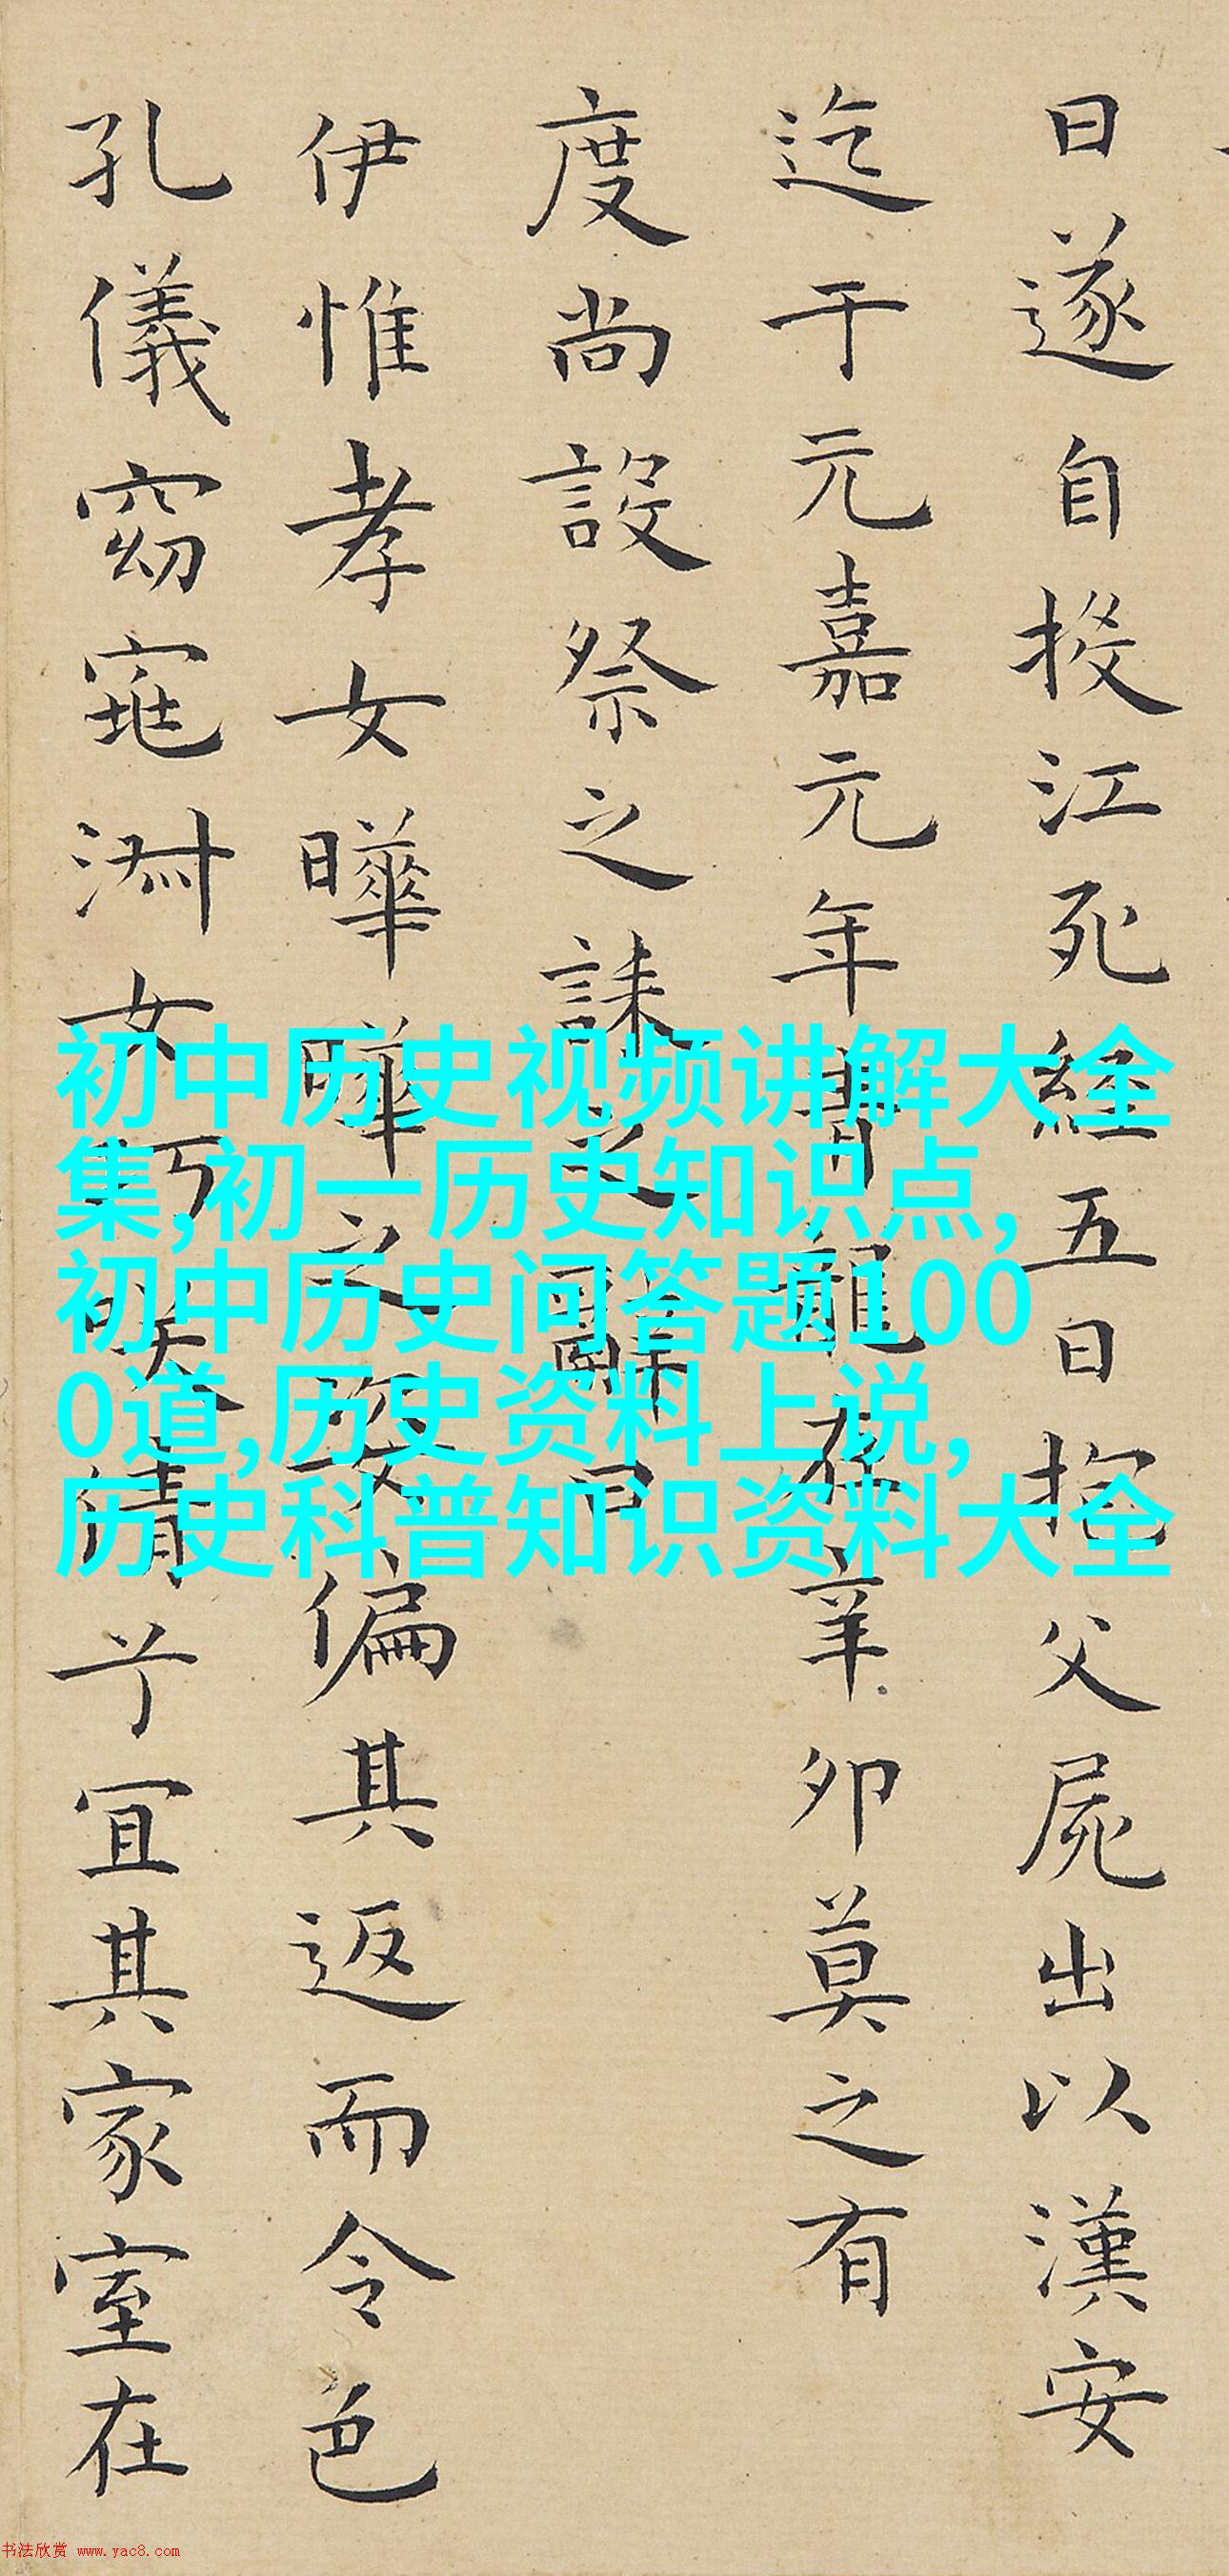 日遂自投江死經五日抱父屍出以漢安
迄于元嘉元年青龍在辛卯莫之有
度尚設祭之誄之辭曰
伊惟孝女曄曄之姿偏其返而令色
孔儀窈窕淑女巧笑倩兮宜其家室在
初中历史视频讲解大全
集,初一历史知识点,
初中历史问答题100
0道,历史资料上说,
历史科普知识资料大全
书法欣赏 www.yac8.com